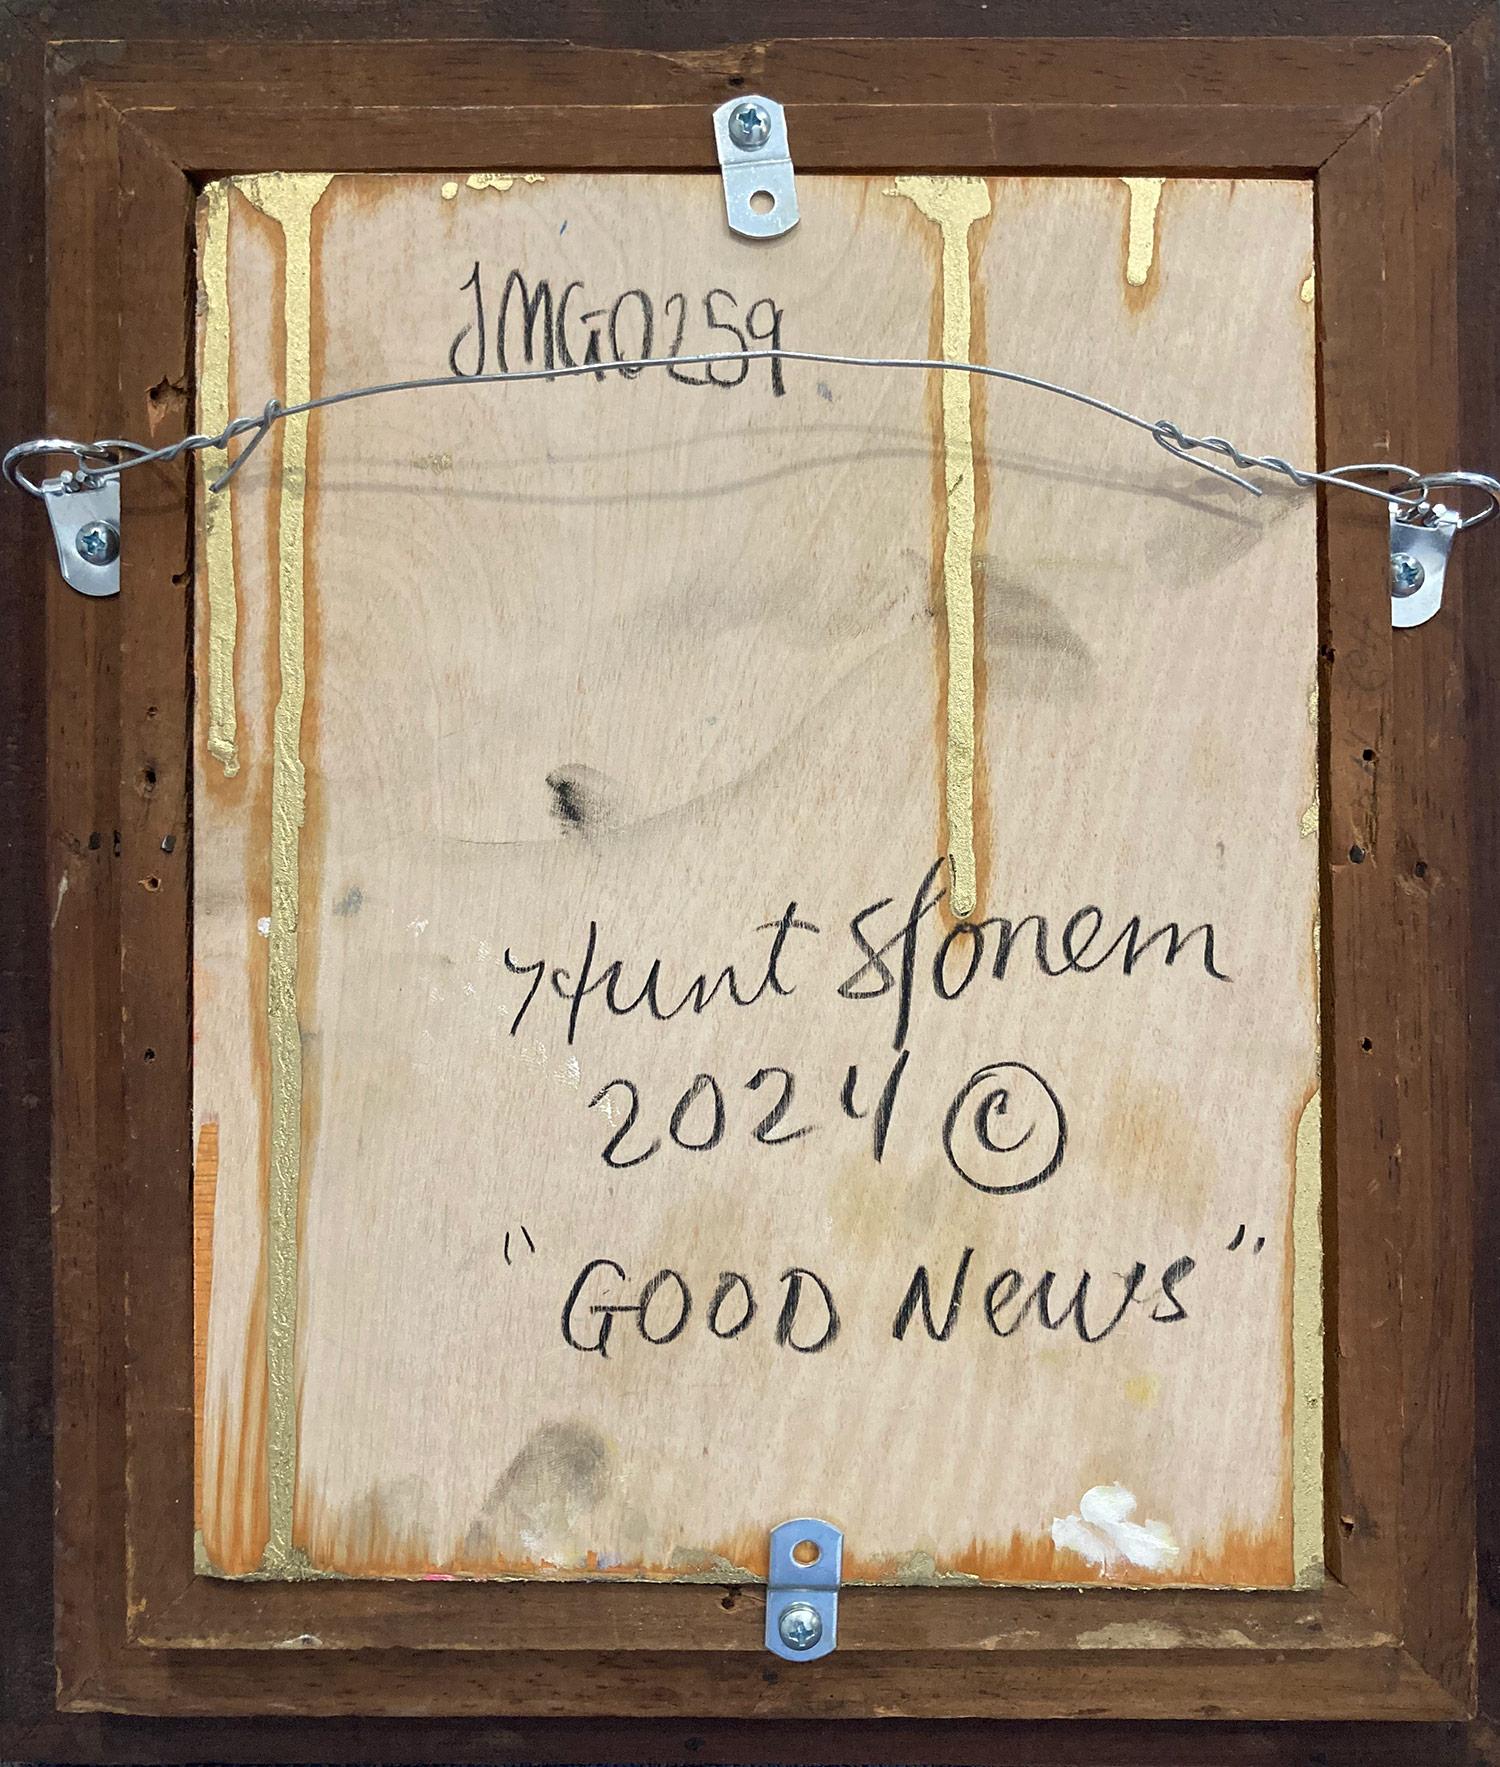 JMG0259
Hunt Slonem
2024 ©
"GOOD News"